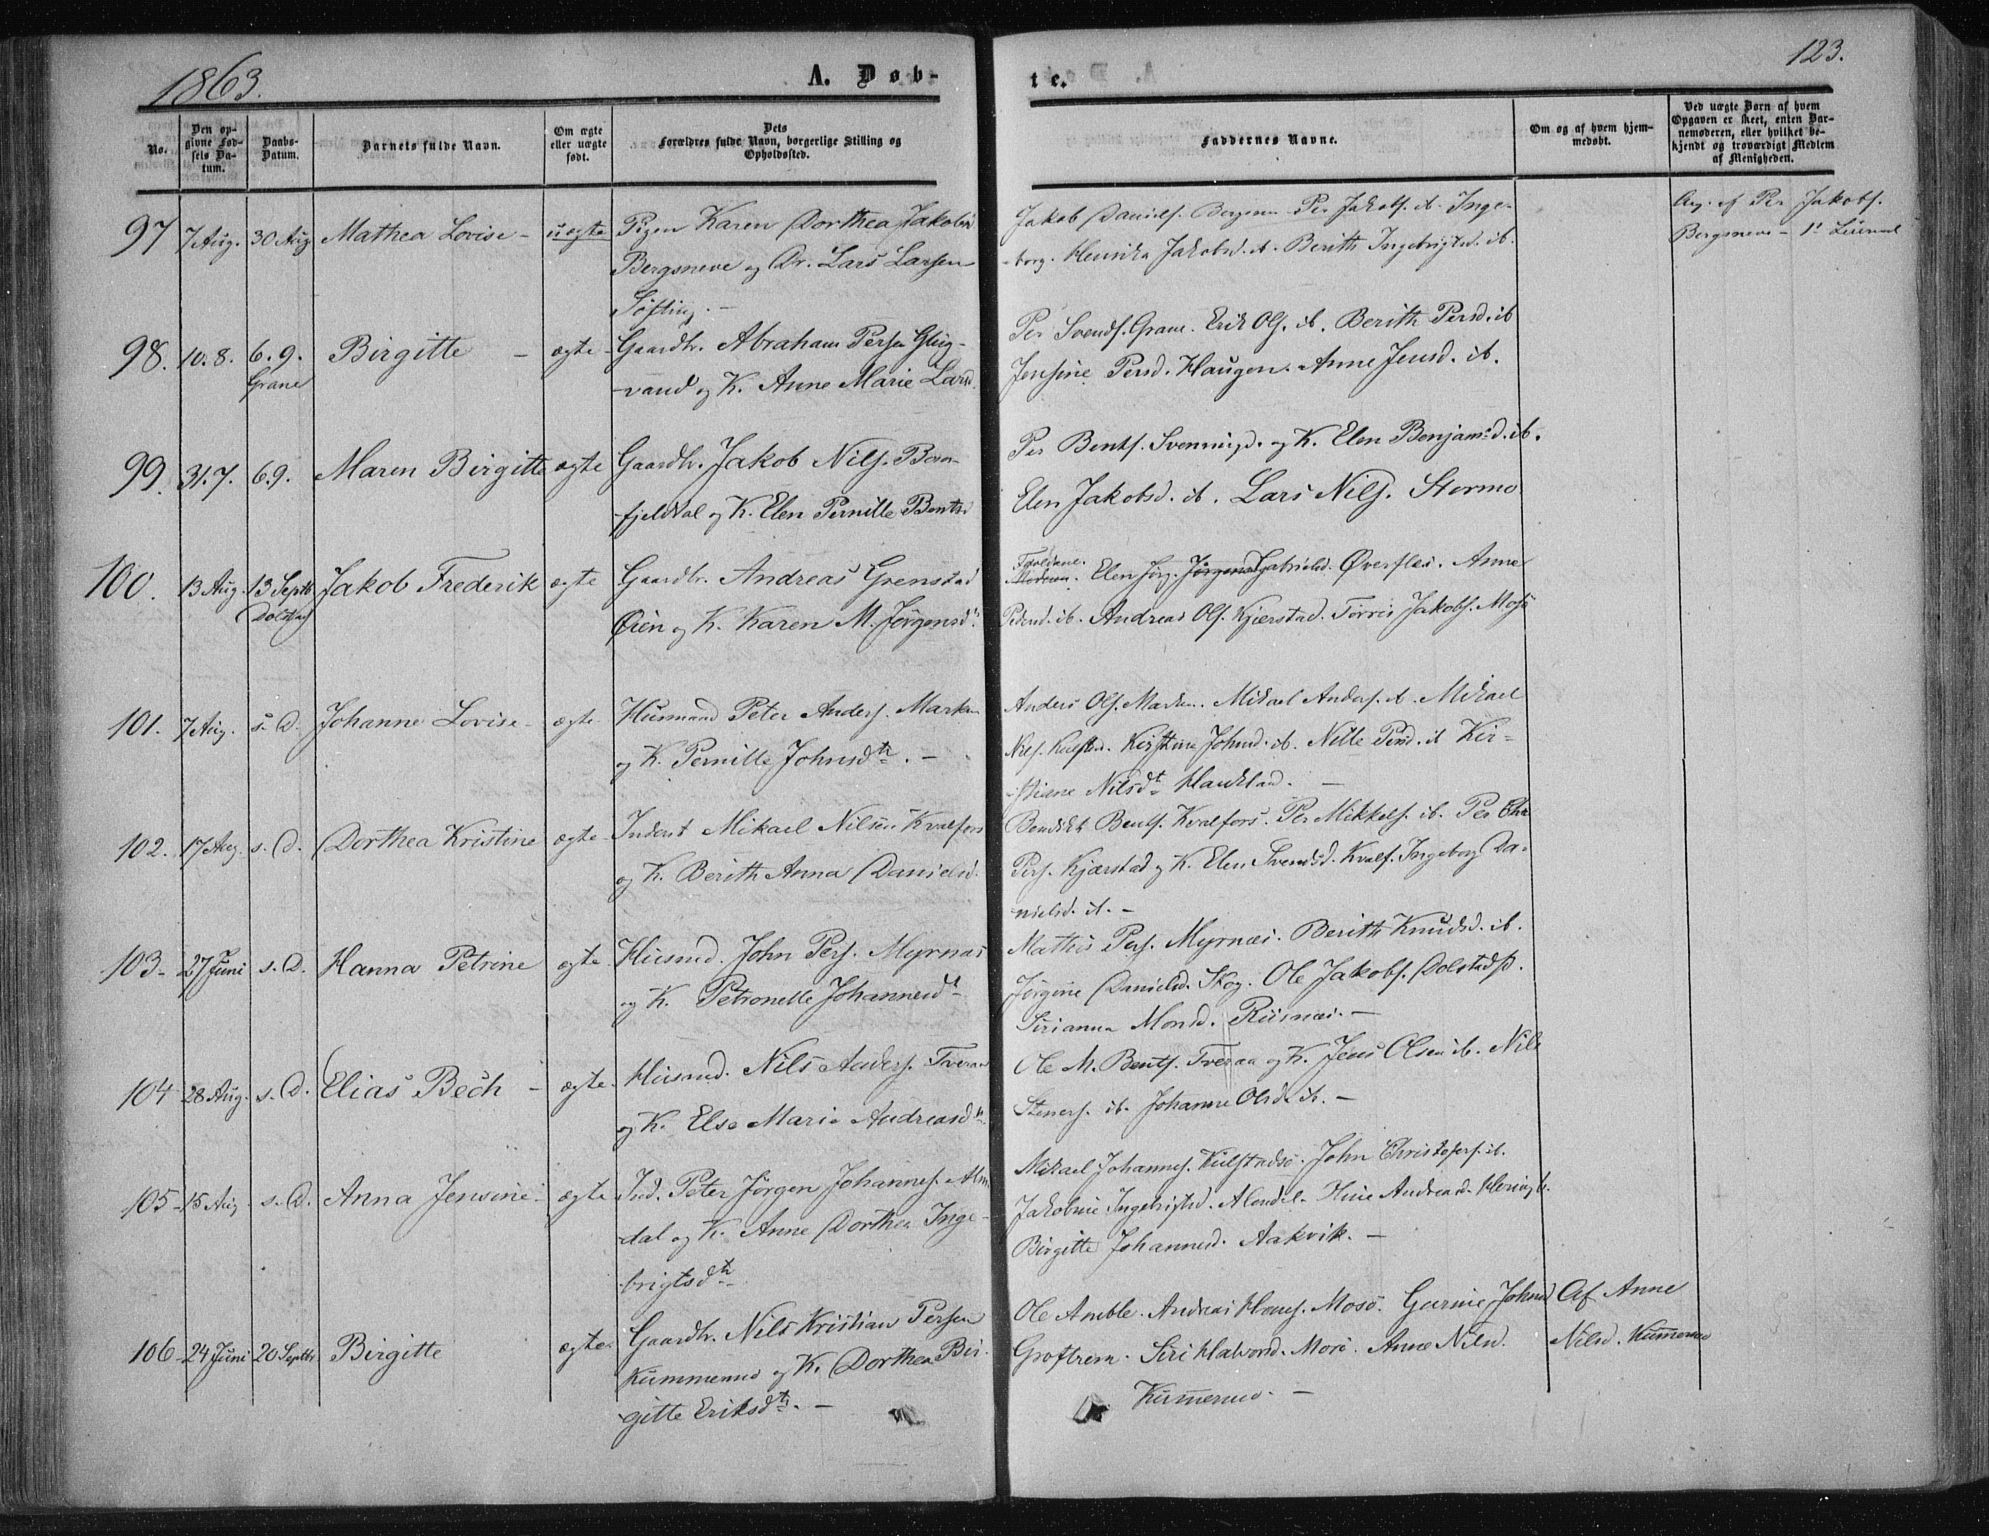 1863.
A. Døb-
te.
123.
No.
Den op-
givne Fød-
sels Da-
tum.
Daabs-
Datum.
Barnets fulde Navn.
Om ægte
eller uægte
født.
Dets
Forældres fulde Navn, borgerlige Stilling og
Opholdssted.
Faddernes Navne.
Om og af hvem hjem-
medøbt.
Ved uægte Børn af hvem
Opgaven er skeet, enten Bar-
nemoderen, eller hvilket be-
kjendt og troværdigt Medlem
af Menigheden.
97 7 Aug. 30 Aug Mathea Lovise - uægte
Pigen Karen Dorthea Jakobs
Bergsneve og Dr. Lars Larsen
Søfting. -
Jakob Daniels. Bergsnev Per Jakobs. ib. Inge-
borg Henrika Jakobsd. ib. Berith Ingebrigtsd. ib.
Ang. af Per Jakobs.
Bergsneve - 1ste Leierm.
98. 10. 8. 6. 9. Grane Birgitte - ægte
Gaardbr. Abraham Persen Glug-
vand og K. Anne Marie Larsd.
Per Svends. Grane. Erik Ols. ib. Berith Persd. ib
Jensine Persd. Haugen. Anne Jensd. ib.
99. 31. 7. 6. 9. Maren Birgitte ægte
Gaardbr. Jakob Nils.
fjeldal og K. Elen Pernille Bentsd
Per Bents. Svenningd. og K. Elen Benjamsd. ib.
Elen Jakobsd. ib. Lars Nils. Stormo
100. 13 Aug. 13 Septb Dolstad Jakob Frederik ægte
Gaardbr. Andreas Grenstad
Øien og K. Karen M. Jørgensd.
Forældrene. Elen Jørg. Jørgens Gabrielsd. Øverfles. Anne
Pedersd. ib. Andreas Ols. Kjærstad. Torris Jakobs. Mosø
101. 7 Aug. s. D. Johanne Lovise - ægte
Husmand Peter Anders. Marken
og K. Pernille Johnsdtr. -
Anders Ols. Marken. Mikael Anders. ib. Mikael
Nils. Kulstad. Kirstine Johnsd. ib. Nille Persd. ib Kir-
stiane Nilsdt Hauklan. -
102. 17 Aug. s. D. Dorthea Kristine ægte
Inderst Mikael Nilsen Kvalfors
og K. Berith Anna Danielsd.
Bendikt Bents. Kvalfors. Per Mikkels. ib. Per Chr
Pers. Kjærstad og K. Elen Svendsd. Kvalf. Ingeborg Da-
nielsd. ib. -
103 27 Juni s. D. Hanna Petrine ægte
Husmd. John Pers. Myrnæs
og K. Petronelle Johannesdt.
Mathis Pers. Myrnæs. Berith Knudsd. ib.
Jørgine Danielsd. Skog. Ole Jakobs. Dolstadsp.
Sirianna Monsd. Riisnæs. -
104 28 Aug. s. D. Elias Bech - ægte
Husmd. Nils Anders. Tveraa
og K. Else Marie Andreasdtr.
Ole M. Bents. Tveraa og K. Jens Olsen ib. Nils
Steners. ib. Johanne Olsd. ib. -
105 15 Aug s. D. Anna Jensine ægte
Ind. Peter Jørgen Johannes. Alm
dal og K. Anne Dorthea Inge-
brigtsdtr
Mikael Johannes. Kulstadsø. John Christofers. ib.
Jakobine Ingebrigtsd. Alendal. Andreasd.
Birgitte Johannesd. Aakvik. -
106 24 Juni 20 Septbr Birgitte ægte
Gaardbr. Nils Kristian Persen
Kummermo og K. Dorthea Bir-
gitte Eriksdtr. -
Ole Amble. Andreas Hans. Mosø. Gurine Johnsd
Groftrem. Siri Halvorsd. Mosø. Anne Nilsd.
Kummermo. -
Af Anne
Nilsd. Kummermo